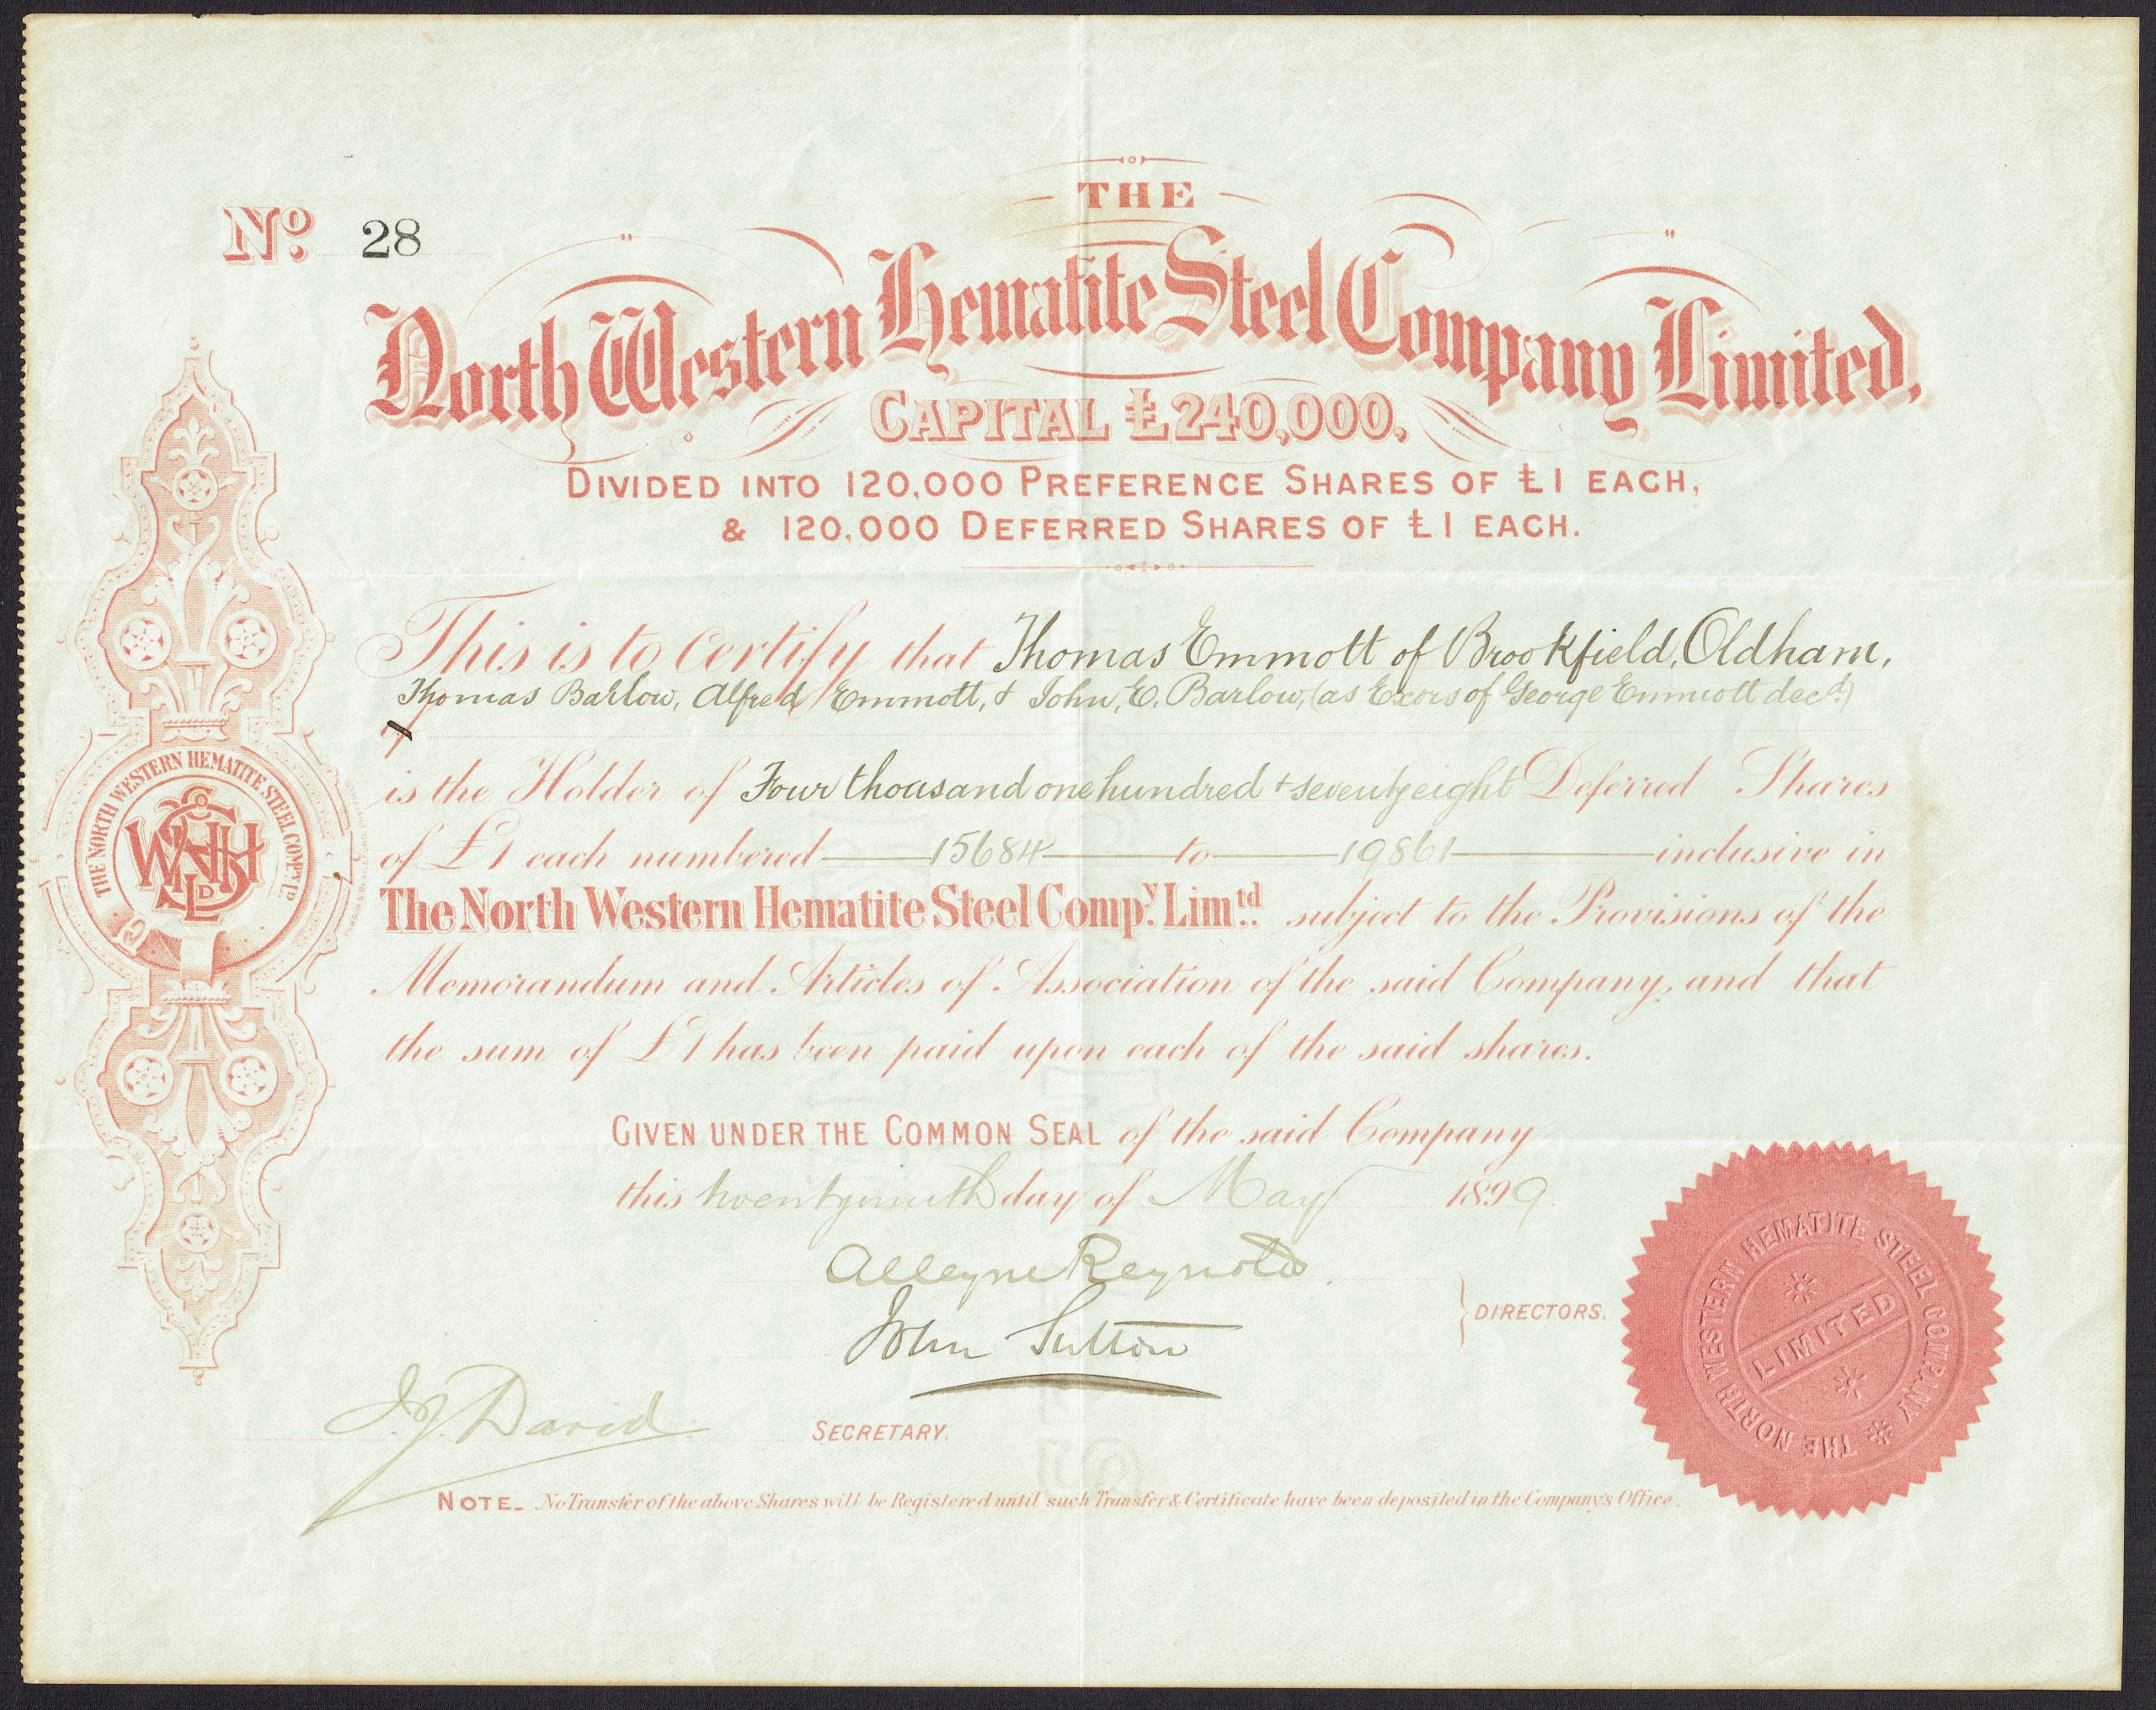 THE
No. 28
North Western Hematite Steel Company Limited,
CAPITAL £240,000,
DIVIDED INTO 120,000 PREFERENCE SHARES OF £1 EACH,
& 120,000 DEFERRED SHARES OF £1 EACH.
This is to Certify that Thomas Emmott of Brookfield, Oldham,
Thomas Barlow, Alfred Emmott, & John E. Barlow, (as Excors of George Emmott decd.)
of
is the Holder of Four thousand one hundred + seventy eight Deferred Shares
of £1 each numbered 15684 to 19861 inclusive in
The North Western Hematite Steel Compy. Limtd. subject to the Provisions of the
Memorandum and Articles of Association of the said Company, and that
the sum of £1 has been paid upon each of the said shares.
GIVEN UNDER THE COMMON SEAL of the said Company
this twentyninth day of May 1899.
Alleyne Reynolds.
John Sutton
DIRECTORS.
J.J. David.
SECRETARY.
NOTE_ No Transfer of the above Shares will be Registered until such Transfer & Certificate have been deposited in the Company's Office.
THE NORTH WESTERN HEMATITE STEEL COMPY. LD.
THE NORTH WESTERN HEMATITE STEEL COMPANY
LIMITED